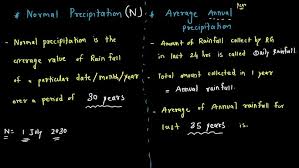 * Normal Precipitation (N)
- Normal precipitation is the
average value of Rainfall
of a particular date/month/year
over a period of 30 years
N= 1 July 2030
* Average Annual
precipitation
- Amount of Rainfall collect by RG
in last 24 hrs is called Daily Rainfall
- Total amount collected in 1 year
= Annual rainfall.
- Average of Annual rainfall for
last 35 years is.